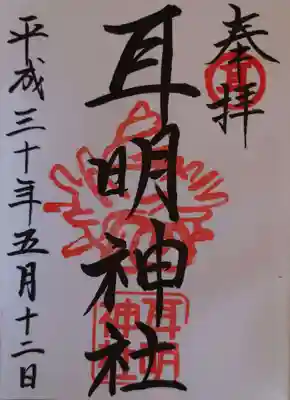 奉拝
耳明神社
平成三十年五月十二日
耳明
神社